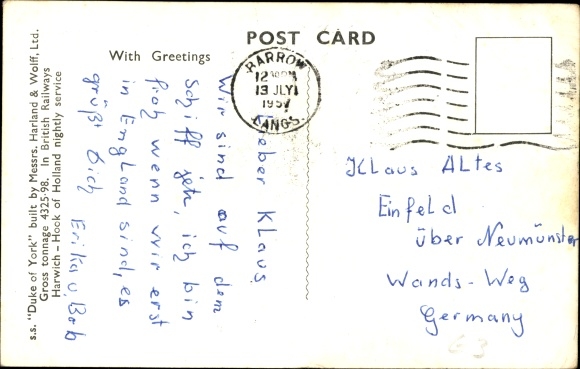 POST CARD
With Greetings
s.s. "Duke of York" built by Messrs. Harland & Wolff, Ltd.
Gross tonnage 4325·98. In British Railways
Harwich – Hook of Holland nightly service
BARROW
12 PM
13 JLY
1957
LANCS
Lieber Klaus,
Wir sind auf dem
Schiff jetz, ich bin
froh wenn wir erst
in England sind, es
grüßt Dich
Erika u. Bob
Klaus Altes
Einfeld
über Neumünster
Wands-Weg
Germany